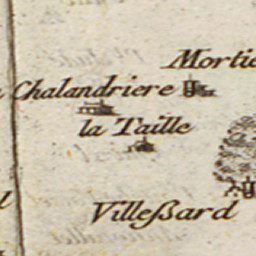 Mortie
Chalandriere
la Taille
Villeßard